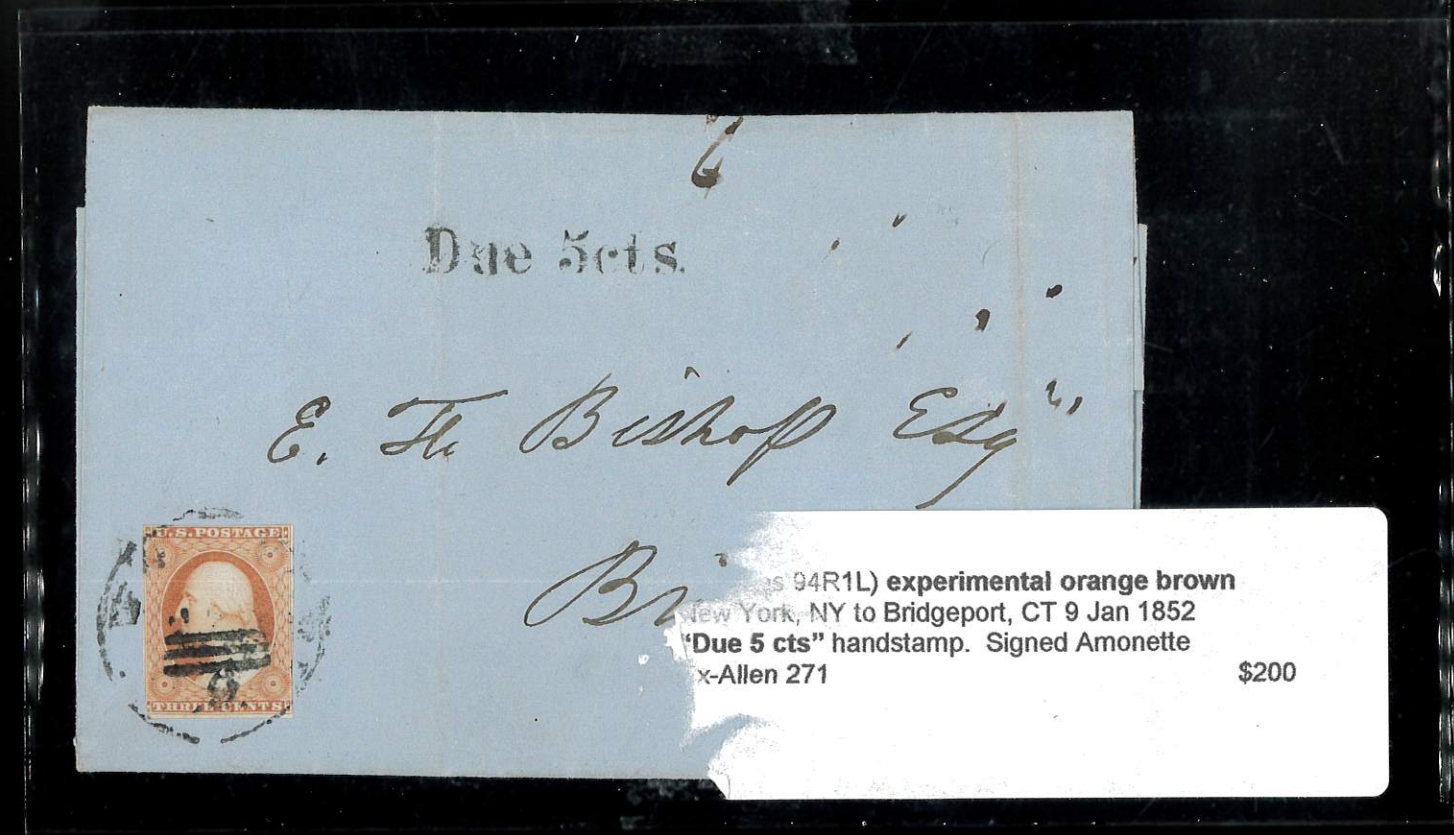 6
Due 5cts.
E. H. Bishop Esqr
U.S. POSTAGE
THREE CENTS
9
Bri
94R1L) experimental orange brown
New York, NY to Bridgeport, CT 9 Jan 1852
"Due 5 cts" handstamp. Signed Amonette
x-Allen 271 $200